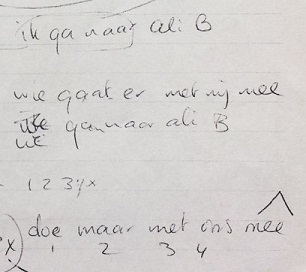 ik ga naar ali B
wie gaat er met mij mee
we gaan naar ali B
we
1 2 3 4 x
doe maar met ons mee
x 1 2 3 4